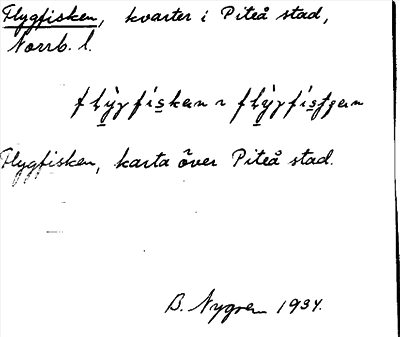 Flygfisken, kvarter i Piteå stad,
Norrb. l.
Flygfisken, karta över Piteå stad.
B. Nygren 1934.